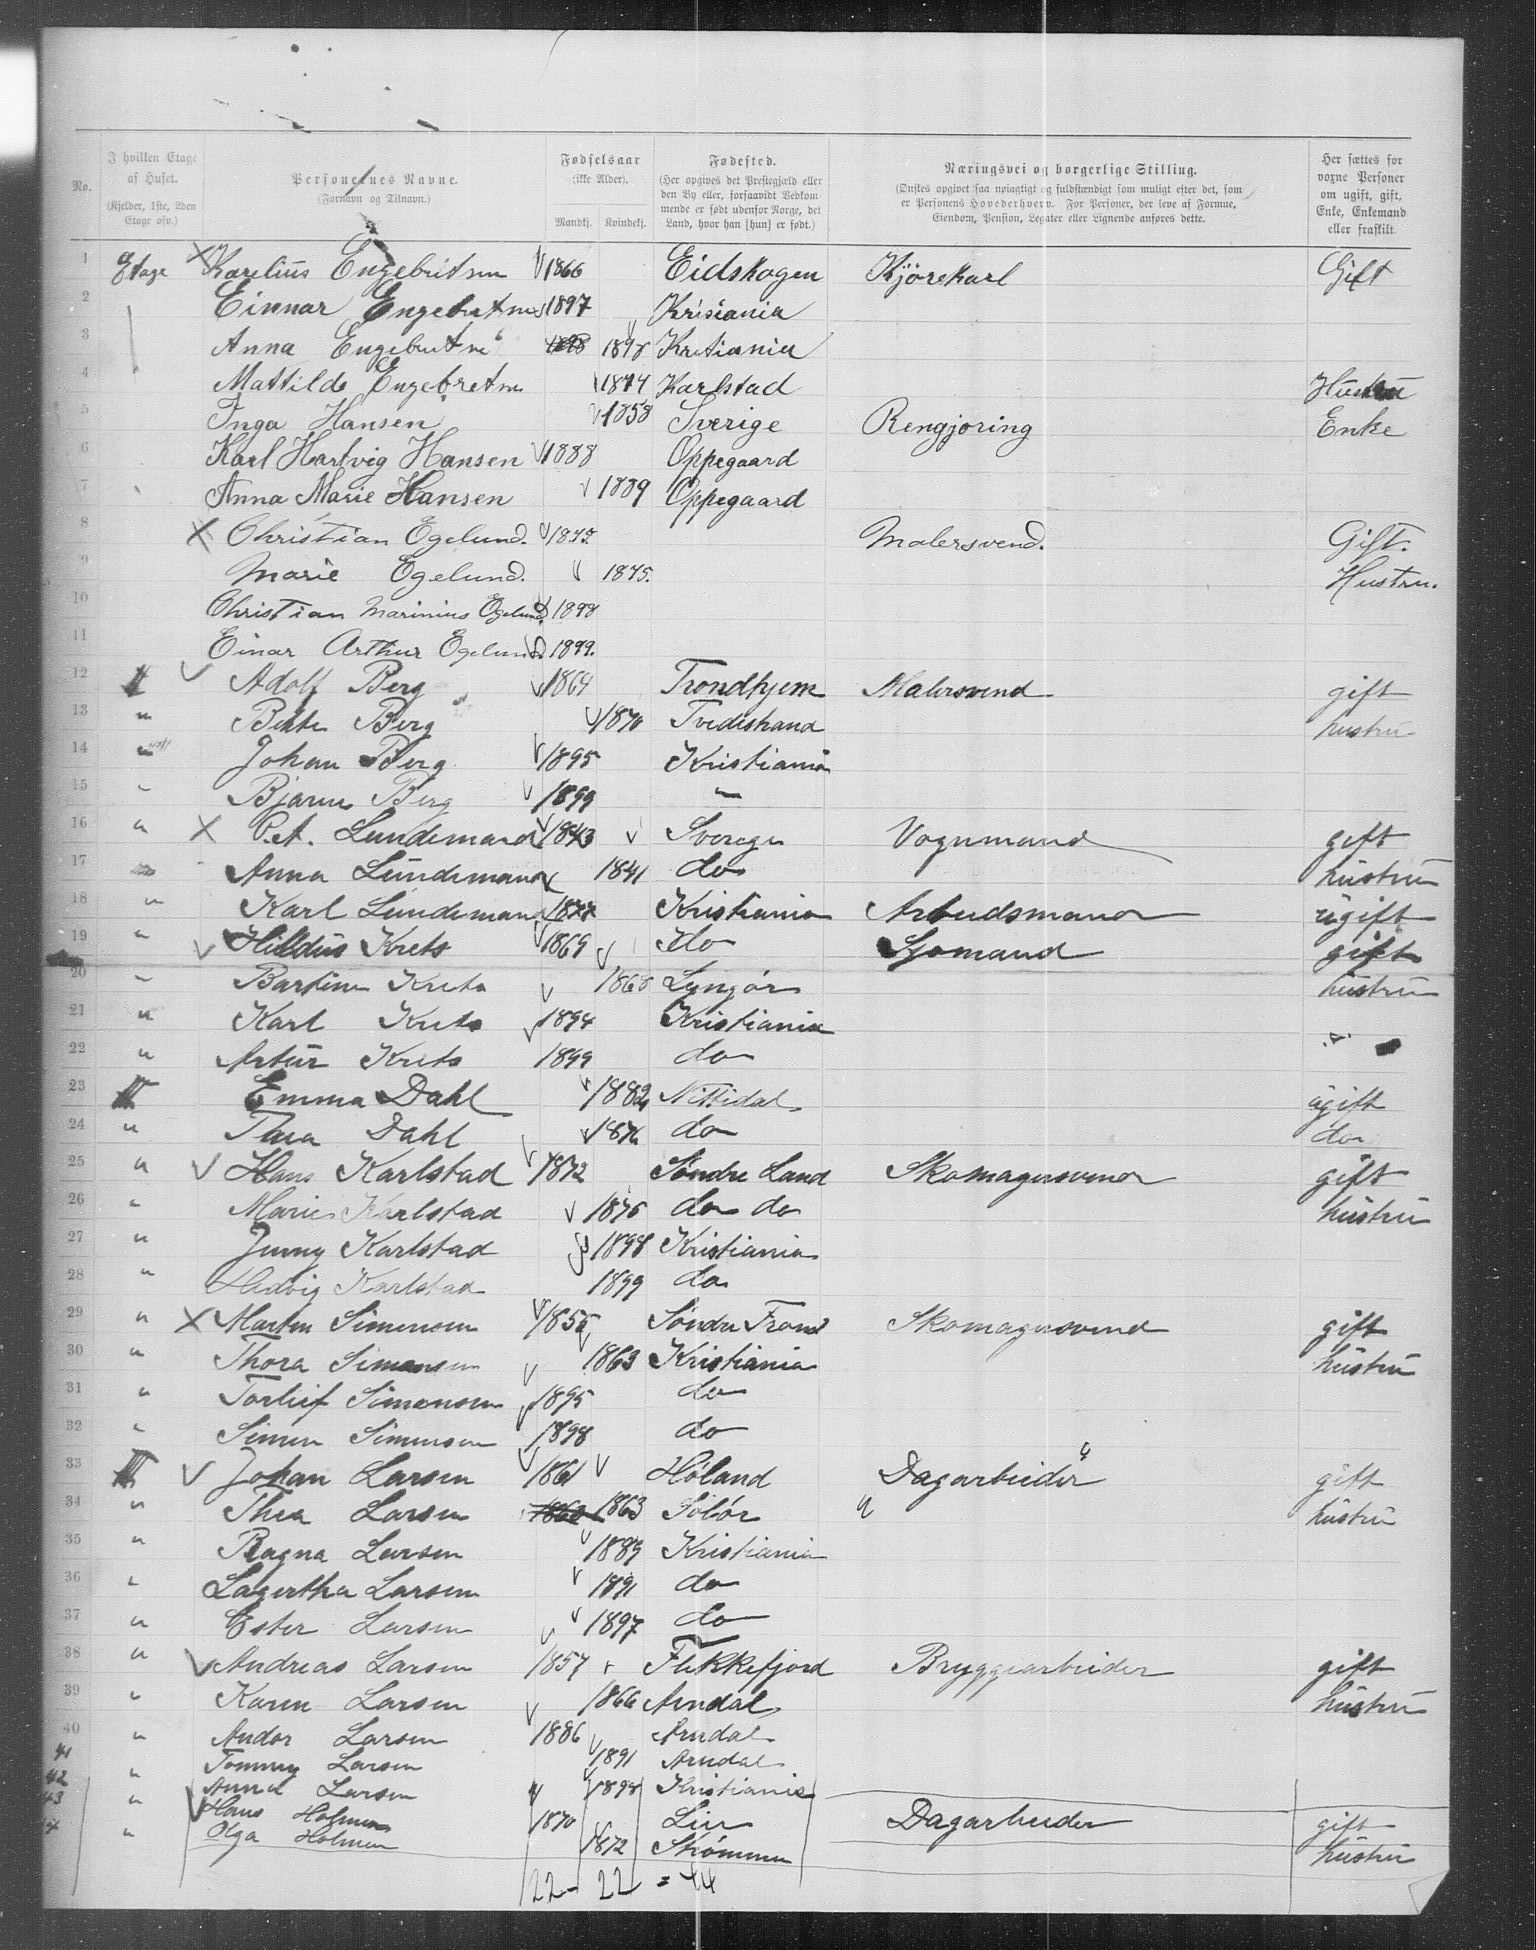 No. | I hvilken Etage af Huset. (Kjelder, 1ste, 2den Etage osv.) | Personernes Navne. (Fornavn og Tilnavn.) | Fødselsaar (ikke Alder). Mandkj. Kvindekj. | Fødested. (Her opgives det Prestegjæld eller den By eller, forsaavidt Vedkommende er født udenfor Norge, det Land, hvor han [hun] er født.) | Næringsvei og borgerlige Stilling. (Ønskes opgivet saa nøiagtigt og fuldstændigt som muligt efter det, som er Personens Hovederhverv. For Personer, der leve af Formue, Eiendom, Pension, Legater eller Lignende anføres dette. | Her sættes for voxne Personer om ugift, gift, Enke, Enkemand eller fraskilt.
1 Etage Karelius Engebritsen 1866 Eidskogen Kjörekarl Gift
2 Einnar 1897 Krisiania
3 Anna 1898 1898 Kristiania
4 Mattilde Engebretsn 1874 Karlstad Hustru
5 Inga Hansen 1858 Sverige Rengjoring Enke
6 Karl Hartvig Hansen 1888 Oppegaard
7 Anna Marie Hansen 1889 Oppegaard
8 Christian Egelund. 1875. Malersvend. Gift.
9 Marie Egelund. 1875. Hustru.
10 Christian Marinius Egelund. 1898
11 Einar Arthur Egelund. 1899.
12 II Adolf Berg 1864 Trondhjem Malersvend gift
13 " Berg 1870 Tvedestrand hustru
14 " Johan Berg 1895 Kristiania
15 " Bjarne Berg 1899 "
16 " Lundemand 1843 Sverege Vognmand gift
17 " Anna Lundemand 1841 do hustru
18 " Karl Lundemand 1877 Kristiania Arbeidsmand ugift
19 " Krets 1869 do Sjomand gift
20 " Krets 1868 Lyngör hustru
21 " Karl Krets 1894 Kristiania
22 " Artur Krets 1899 do
23 III Emma Dahl 1882 Nittidal ugift
24 " Thea Dahl 1876 do do
25 " Hans Karlstad 1872 Søndre Land Skomagersvend gift
26 " Marie Karlstad 1876 do do hustru
27 " Jenny Karlstad 1898 Kristiania
28 " Hedvig Karlstad 1899 do
29 " Marten Simensen 1855 Skomagersvend gift
30 " Thora Simensen 1863 Kristiania hustru
31 " Torleif Simensen 1895 do
32 " Simen Simensen 1898 do
33 III Johan Larsen 1861 Höland Dagarbeider gift
34 " Thea Larsen 1863 Solör " hustru
35 " Ragna Larsen 1889 Kristiania
36 " Lagertha Larsen 1891 do
37 " Ester Larsen 1897 do
38 " Andreas Larsen 1857 Flekkefjord Bryggearbeider gift
39 " Karen Larsen 1866 Arndal hustru
40 " Andor Larsen 1886 Arndal
41 " Tommy Larsen 1891 Arndal
42 Larsen 1898 Kristiania
43 " Hans Holmen 1870 Lier Dagarbeider gift
44 " Olga Holmen 1872 Strömmen hustru
22 - 22 = 44